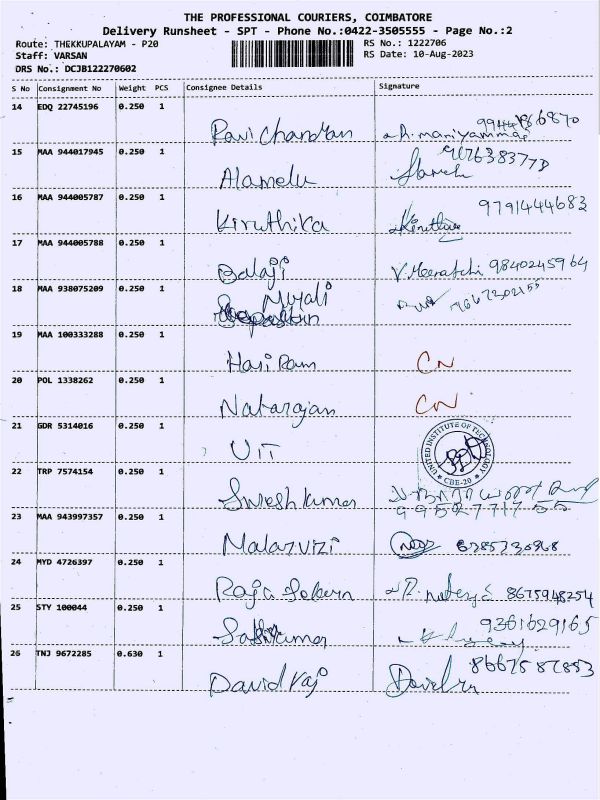 THE PROFESSIONAL COURIERS, COIMBATORE
Delivery Runsheet - SPT - Phone No.:0422-3505555 - Page No.:2
Route: THEKKUPALAYAM - P20 RS No.: 1222706
Staff: VARSAN RS Date: 10-Aug-2023
DRS No.: DCJB122270602
S No Consignment No Weight PCS Consignee Details Signature
14 EDQ 22745196 0.250 1
Ravi Chandran
15 MAA 944017945 0.250 1
Alamelu
16 MAA 944005787 0.250 1 9791444683
Kiruthika
17 MAA 944005788 0.250 1
Balaji V. Meenatchi 9840245964
18 MAA 938075209 0.250 1
Muyali
19 MAA 100333288 0.250 1
Hari Ram CN
20 POL 1338262 0.250 1
Natarajan CN
21 GDR 5314016 0.250 1
UIT
UNITED INSTITUTE OF TECHNOLOGY
CBE-20
22 TRP 7574154 0.250 1
Suresh kumar
23 MAA 943997357 0.250 1
Malarvizi
24 MYD 4726397 0.250 1
Raja 8675948254
25 STY 100044 0.250 1 9361629165
Sathkumar
26 TNJ 9672285 0.630 1
David raj